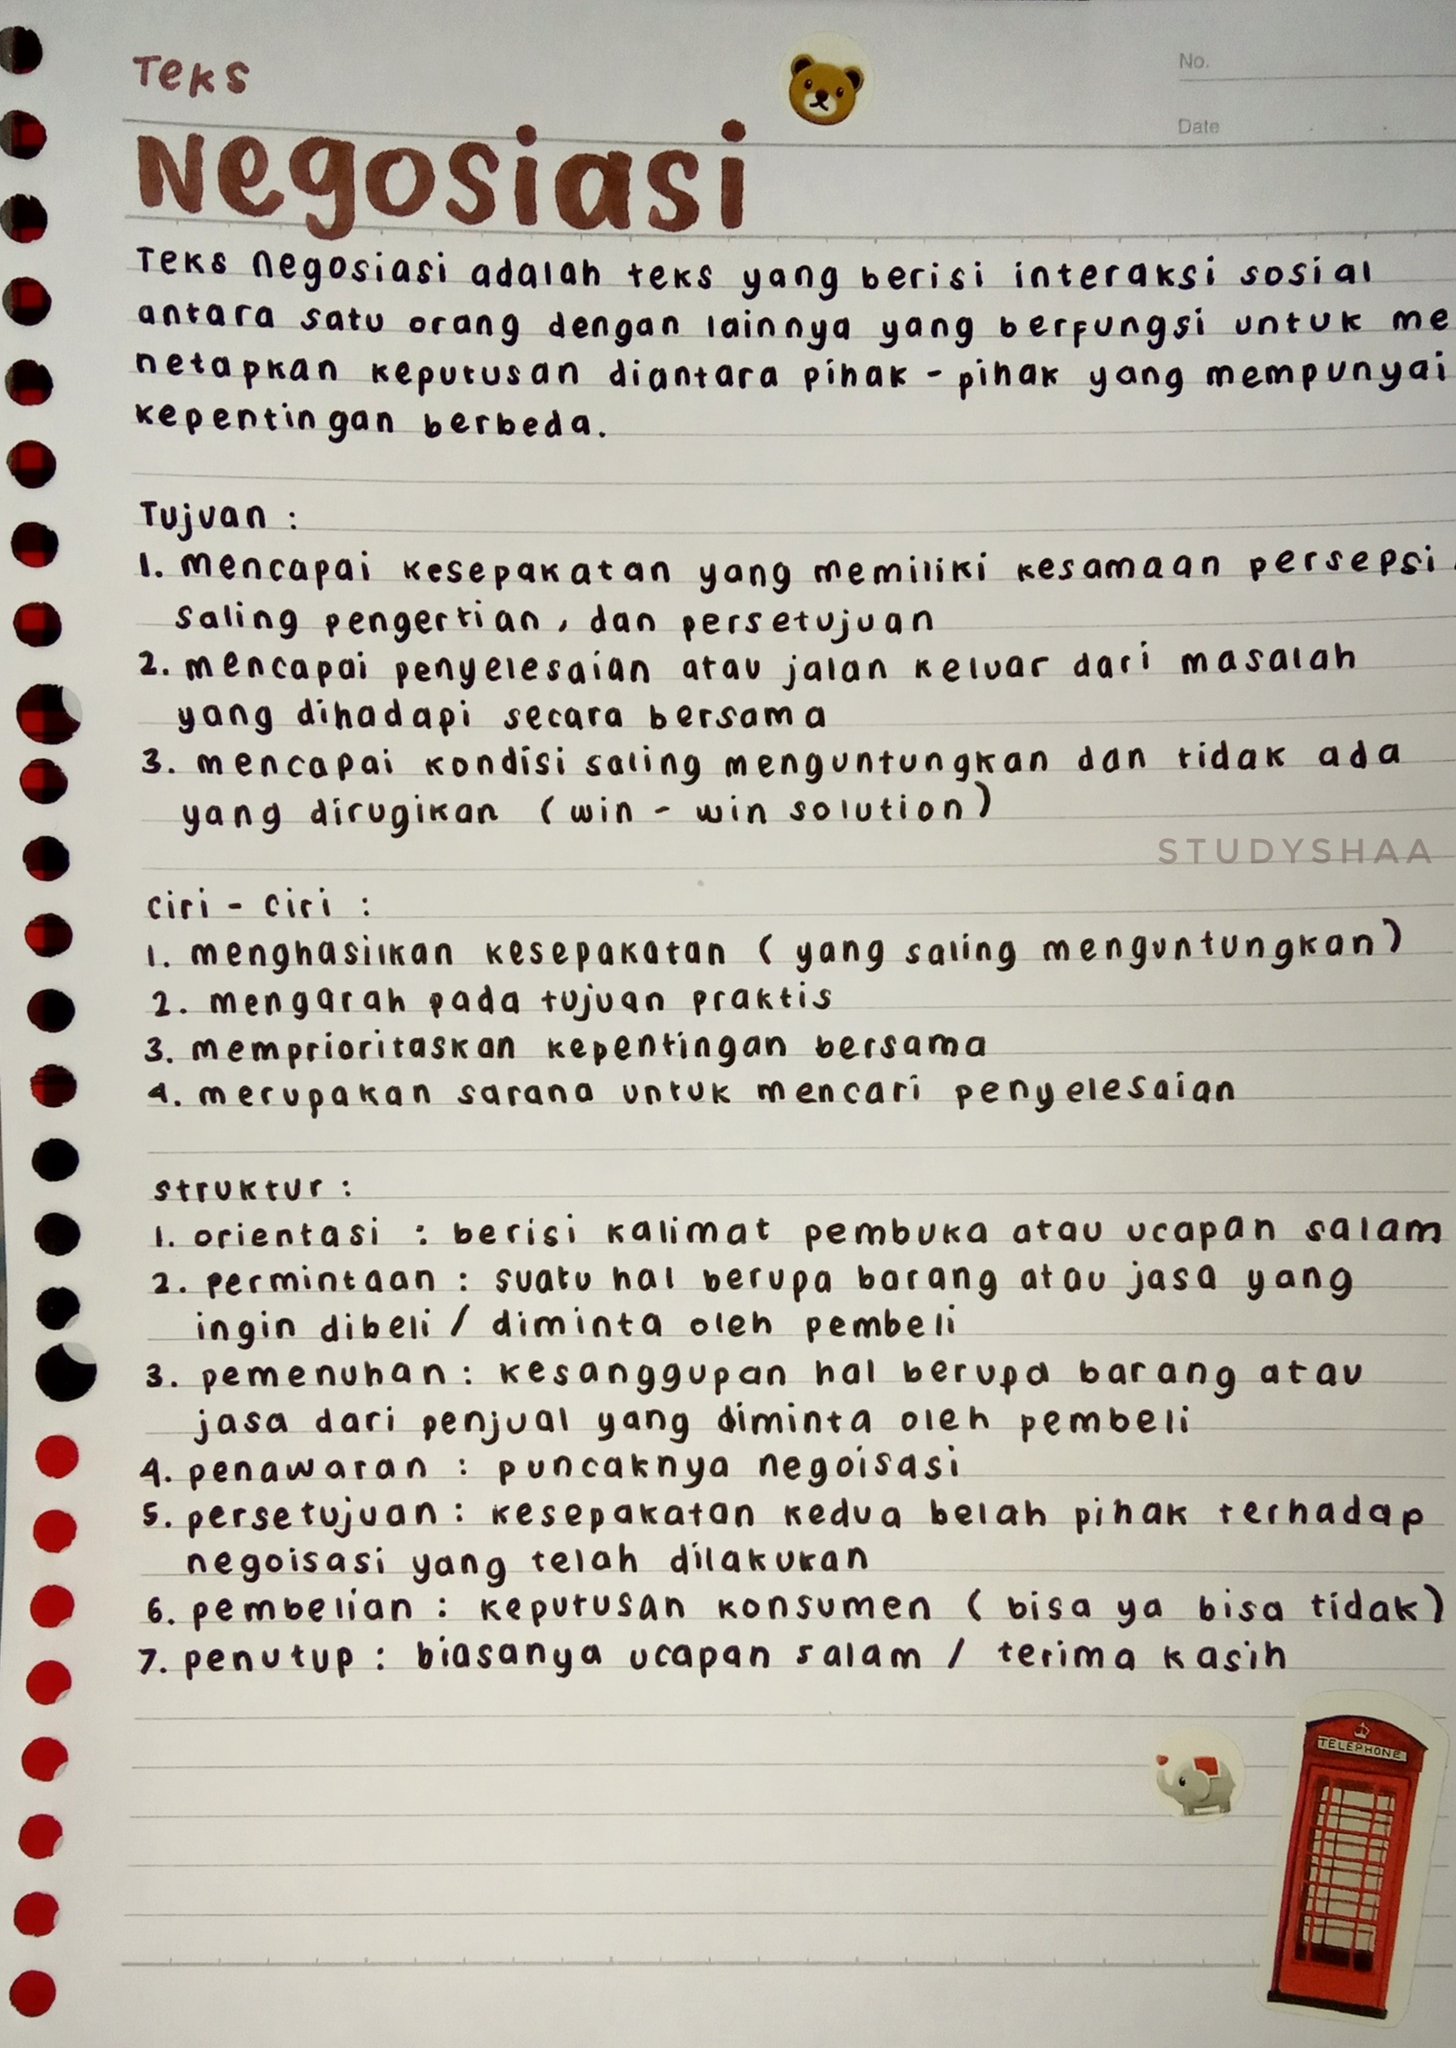 Teks
No.
Date
Negosiasi
Teks negosiasi adalah teks yang berisi interaksi sosial
antara satu orang dengan lainnya yang berfungsi untuk me
netapkan keputusan diantara pihak - pihak yang mempunyai
kepentingan berbeda.
Tujuan :
1. mencapai kesepakatan yang memiliki kesamaan persepsi,
saling pengertian, dan persetujuan
2. mencapai penyelesaian atau jalan keluar dari masalah
yang dihadapi secara bersama
3. mencapai kondisi saling menguntungkan dan tidak ada
yang dirugikan (win - win solution)
STUDYSHAA
ciri - ciri :
1. menghasilkan kesepakatan (yang saling menguntungkan)
2. mengarah pada tujuan praktis
3. memprioritaskan kepentingan bersama
4. merupakan sarana untuk mencari penyelesaian
struktur :
1. orientasi : berisi kalimat pembuka atau ucapan salam
2. permintaan : suatu hal berupa barang atau jasa yang
ingin dibeli / diminta oleh pembeli
3. pemenuhan : kesanggupan hal berupa barang atau
jasa dari penjual yang diminta oleh pembeli
4. penawaran : puncaknya negoisasi
5. persetujuan : kesepakatan kedua belah pihak terhadap
negoisasi yang telah dilakukan
6. pembelian : keputusan konsumen (bisa ya bisa tidak)
7. penutup : biasanya ucapan salam / terima kasih
TELEPHONE